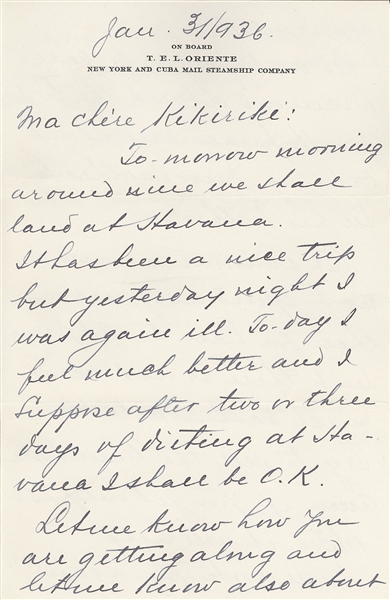 Jan. 31/936.
ON BOARD
T. E. L. ORIENTE
NEW YORK AND CUBA MAIL STEAMSHIP COMPANY
Ma chère Kikirikí:
To-morrow morning
around nine we shall
land at Havana.
It has been a nice trip
but yesterday night I
was again ill. To-day I
feel much better and I
suppose after two or three
days of dieting at Ha-
vana I shall be O.K.
Let me know how you
are getting along and
let me know also about